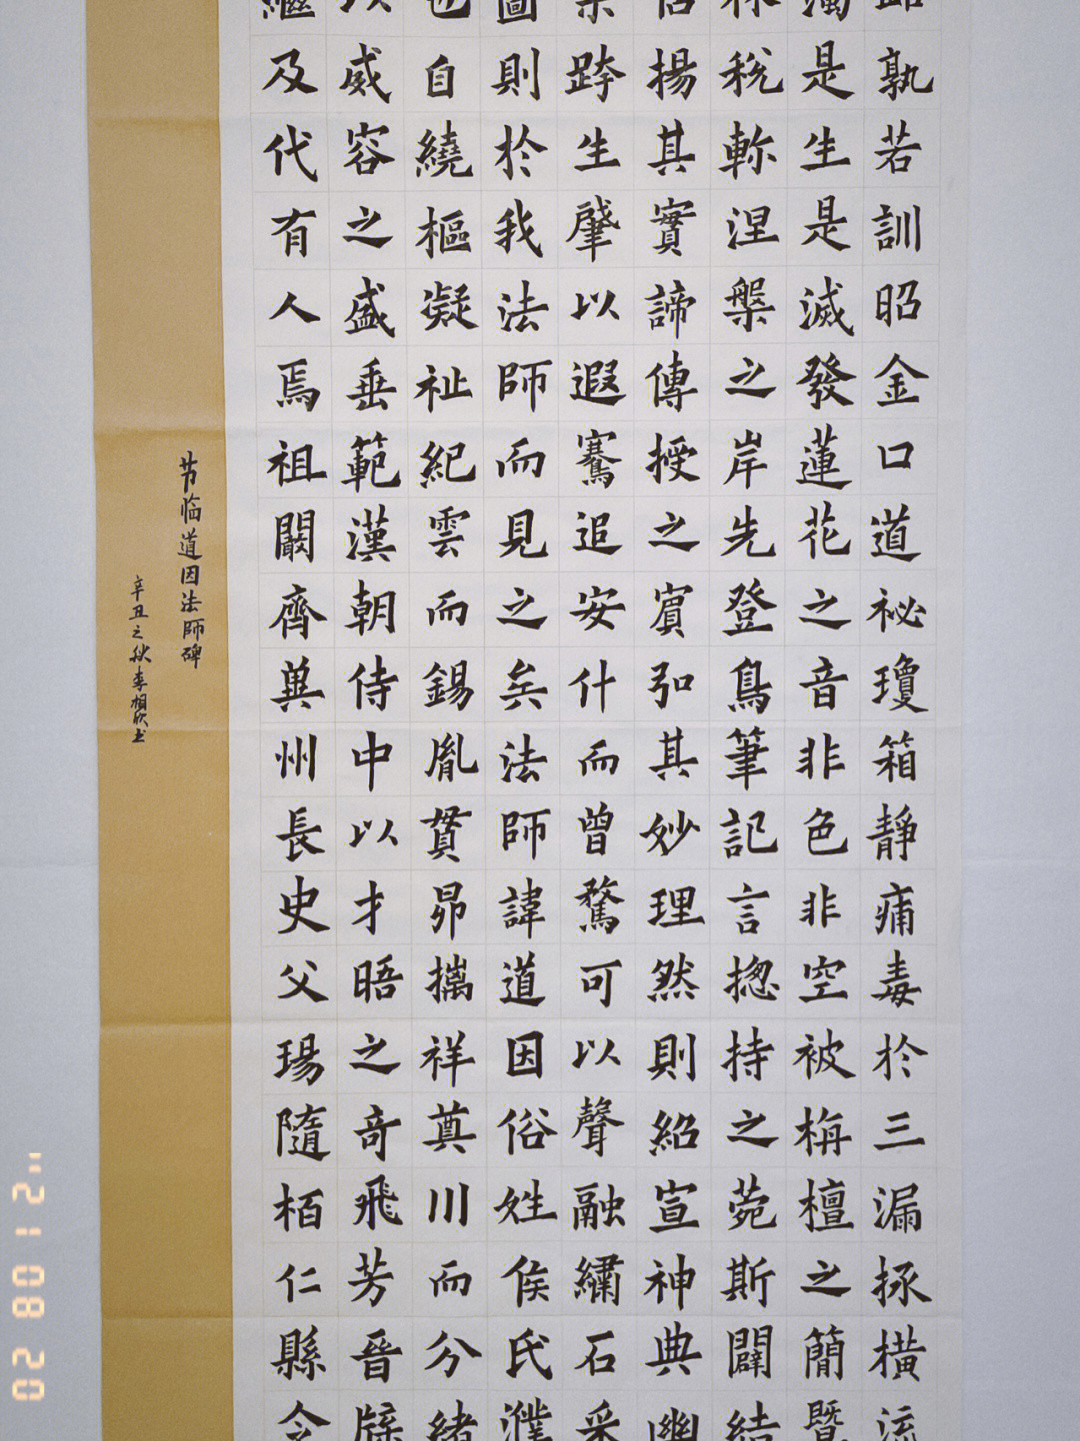 孰若訓昭金口道祕瓊箱靜痛毒於三漏拯橫流
濁是生是滅發蓮花之音非色非空被栴檀之簡暨
秣稅軫涅槃之岸先登鳥筆記言揔持之菀斯闢結
揚其實諦傳授之賓弘其妙理然則紹宣神典幽
業跨生肇以遐騫追安什而曾騖可以聲融繡石采
圖則於我法師而見之矣法師諱道因俗姓侯氏濮
也自繞樞凝祉紀雲而錫胤貫昴摛祥奠川而分緒
以威容之盛垂範漢朝侍中以才晤之奇飛芳晉牒
繼及代有人焉祖闞齊兾州長史父瑒隨栢仁縣令
节临道因法師碑
辛丑之秋李相欣书
02 80 12"